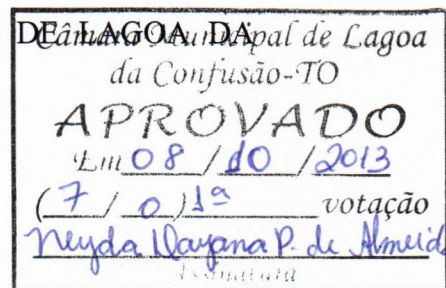 DE LAGOA DA
Câmara Municipal de Lagoa
da Confusão-TO
APROVADO
Em 08 / 10 / 2013
( 7 / 0 ) 1ª votação
Neyda Dayana P. de Almeida
Assinatura